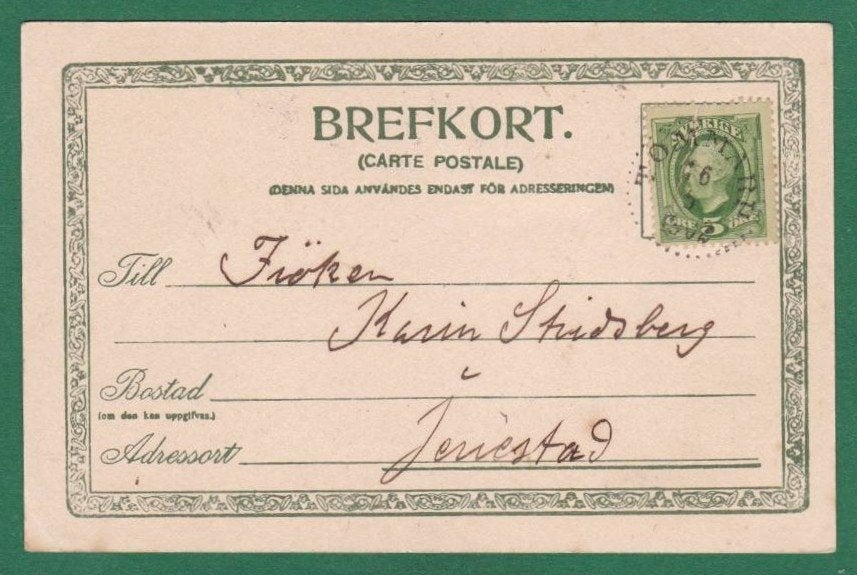 BREFKORT.
(CARTE POSTALE)
(DENNA SIDA ANVÄNDES ENDAST FÖR ADRESSERINGEN)
SVERIGE
5
Till Fröken
Karin Stridsberg
Bostad
(om den kan uppgifvas.)
Adressort